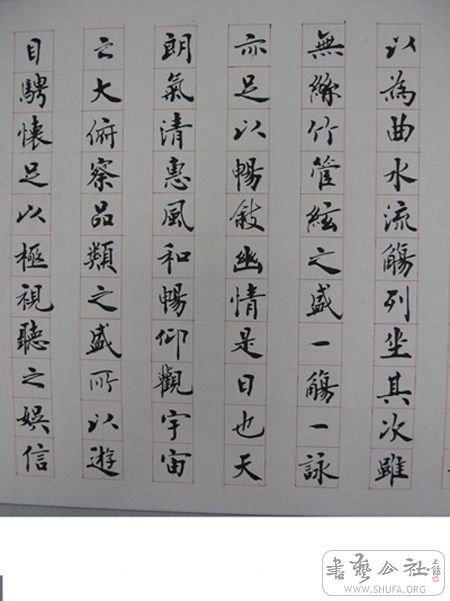 以為曲水流觴列坐其次雖
無絲竹管絃之盛一觴一詠
亦足以暢敘幽情是日也天
朗氣清惠風和暢仰觀宇宙
之大俯察品類之盛所以遊
目騁懷足以極視聽之娛信
書藝公社
WWW.SHUFA.ORG